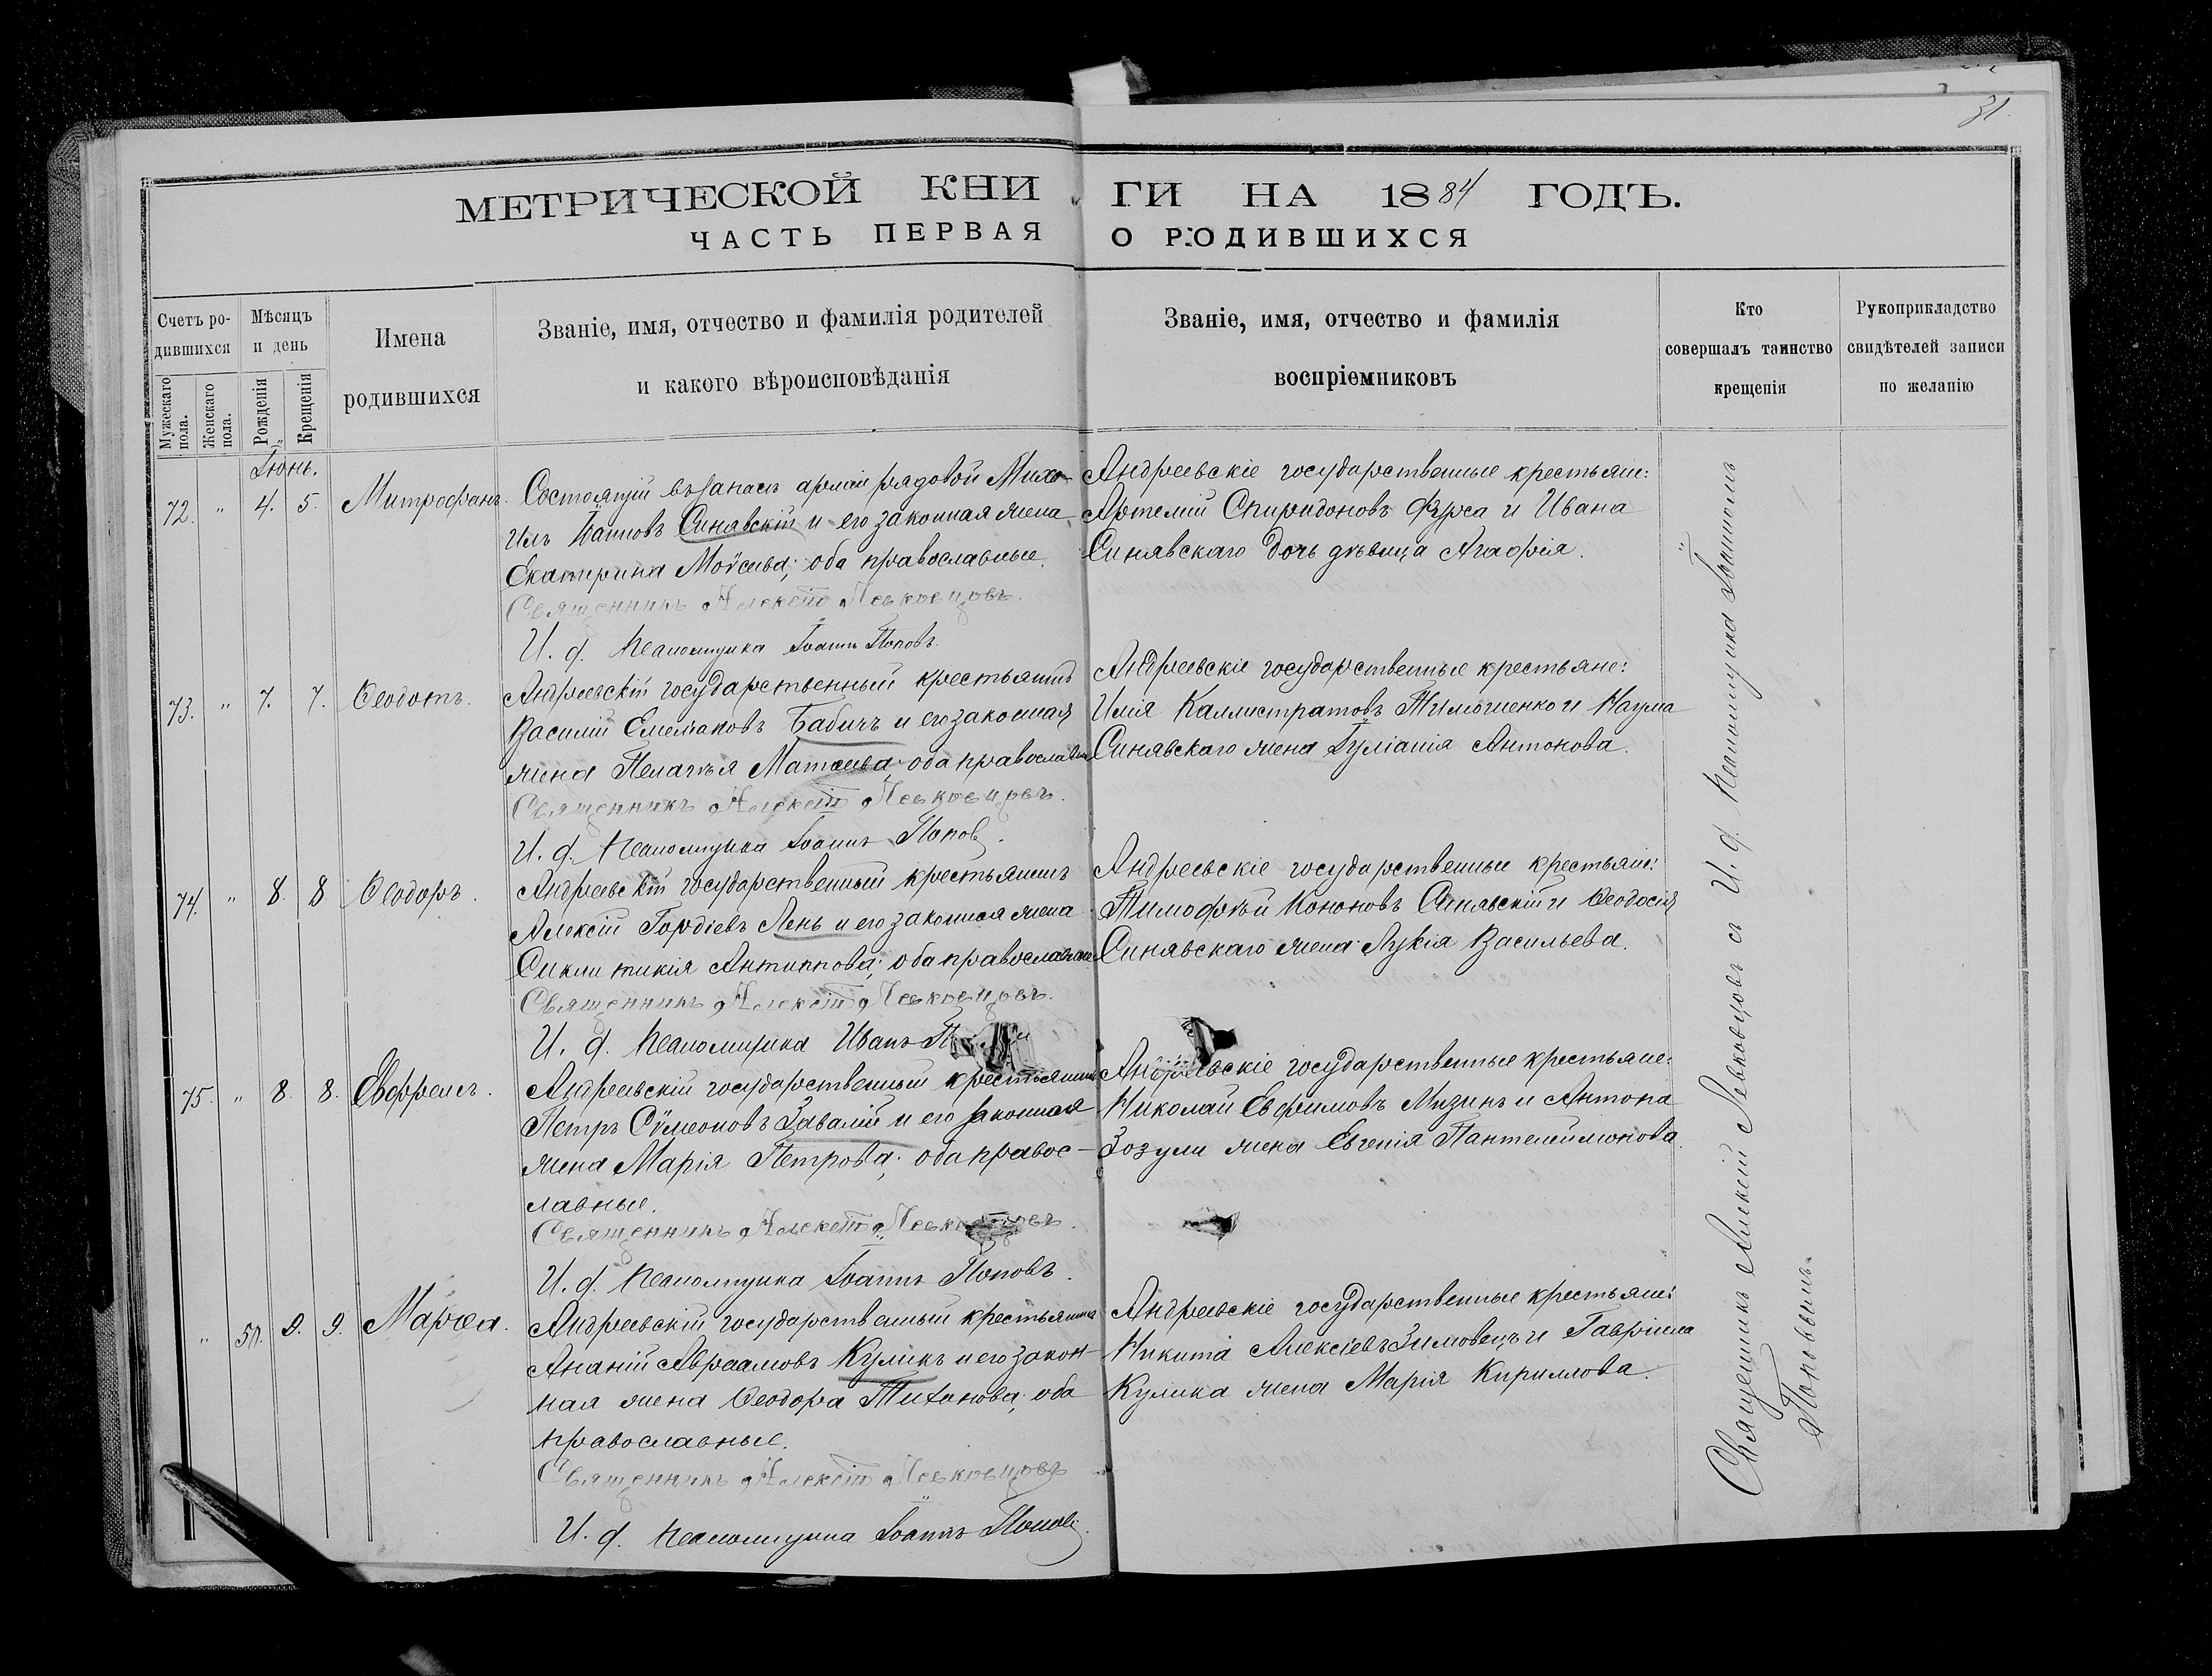 31.
МЕТРИЧЕСКОЙ КНИГИ НА 1884 ГОДЪ.
ЧАСТЬ ПЕРВАЯ О РОДИВШИХСЯ
Счетъ ро-
дившихся
Мужескаго пола.
Женскаго пола.
Мѣсяцъ
и день
Рожденія
Крещенія
Имена
родившихся
Званіе, имя, отчество и фамилія родителей
и какого вѣроисповѣданія
Званіе, имя, отчество и фамилія
воспріемниковъ
Кто
совершалъ таинство
крещенія
Рукоприкладство
свидѣтелей записи
по желанію
Іюнь.
72. " 4. 5. Митрофанъ.
Состоящій въ запасѣ арміи рядовой Миха-
илъ Синявскій и его законная жена
Екатерина Моѵсеева; оба православные.
Священникъ Алексій Левковцовъ.
И. д. псаломщика Іоаннъ Поповъ.
Андреевскіе государственные крестьяне:
Артемій Спиридоновъ Фурса и Ивана
Синявскаго дочь дѣвица Агафія.
73. " 7. 7. Ѳеодотъ.
Андреевскій государственный крестьянинъ
Василій Емеліановъ Бабичъ и его законная
жена Пелагія Матѳеева; оба православные
Священникъ Алексій Левковцовъ.
И. д. псаломщика Іоаннъ Поповъ.
Андреевскіе государственные крестьяне:
Илія Каллистратовъ Тимошенко и Наума
Синявскаго жена Іуліанія Антонова.
74. " 8. 8 Ѳеодоръ.
Андреевскій государственный крестьянинъ
Алексій Гордіевъ Лень и его законная жена
Синклитикія Антиппова; оба православные
Священникъ Алексій Левковцовъ.
И. д. псаломщика Иванъ
Андреевскіе государственные крестьяне:
Тимофей Кононовъ Синявскій и Ѳеодосія
Синявскаго жена Лукія Васильева.
75. " 8. 8. Евфремъ.
Андреевскій государственный крестьянинъ
Петръ Сѵмеоновъ Завалій и его законная
жена Марія Петрова; оба правос-
лавные.
Священникъ Алексій Левковцовъ.
И. д. псаломщика Іоаннъ Поповъ.
Андреевскіе государственные крестьяне:
Николай Евфимовъ Мизинъ и Антона
Зозули жена Евгенія Пантелеимонова.
" 51. 9. 9. Марѳа.
Андреевскій государственный крестьянинъ
Ананій Авраамовъ Куликъ и его закон-
ная жена Ѳеодора Тихонова; оба
православные.
Священникъ Алексій Левковцовъ
И. д. псаломщика Іоаннъ Поповъ.
Андреевскіе государственные крестьяне:
Никита Алексіевъ Зимовецъ и Гавріила
Кулика жена Марія Кириллова.
Священникъ Алексій Левковцовъ съ И. д. псаломщика Іоанномъ
Поповымъ.